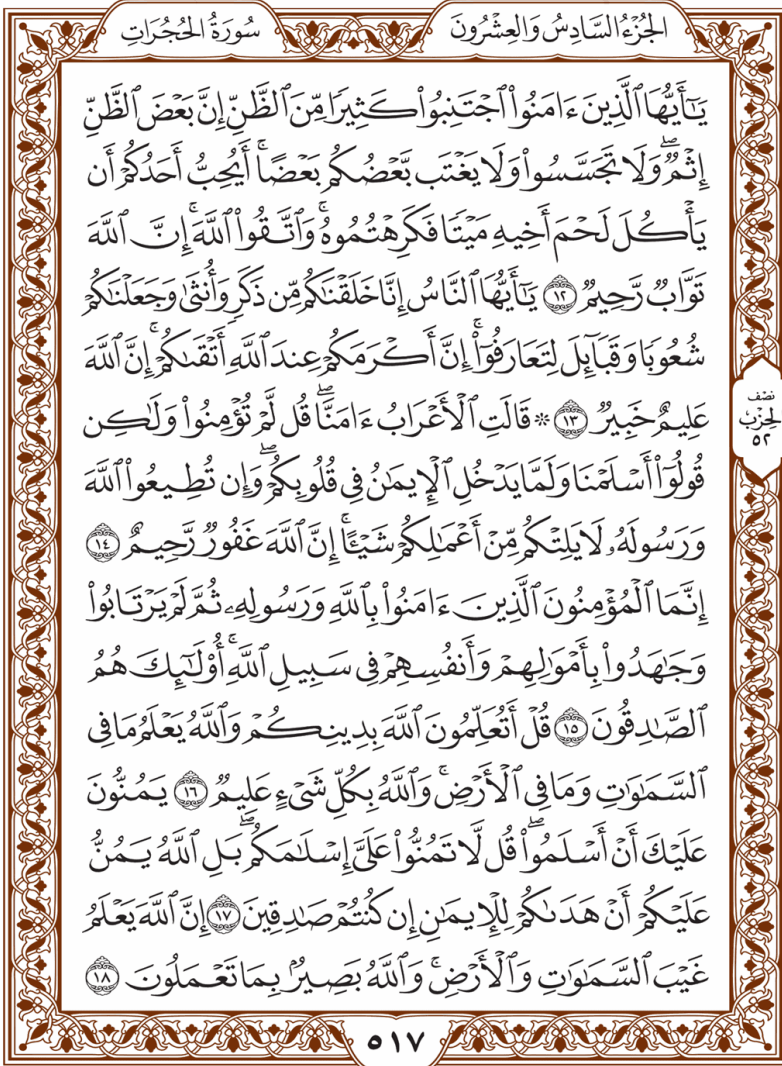 الجُزْءُ السَّادِسُ وَالعِشْرُونَ
سُورَةُ الحُجُرَاتِ
يَـٰٓأَيُّهَا ٱلَّذِينَ ءَامَنُوا۟ ٱجْتَنِبُوا۟ كَثِيرًا مِّنَ ٱلظَّنِّ إِنَّ بَعْضَ ٱلظَّنِّ
إِثْمٌ ۖ وَلَا تَجَسَّسُوا۟ وَلَا يَغْتَب بَّعْضُكُم بَعْضًا ۚ أَيُحِبُّ أَحَدُكُمْ أَن
يَأْكُلَ لَحْمَ أَخِيهِ مَيْتًا فَكَرِهْتُمُوهُ ۚ وَٱتَّقُوا۟ ٱللَّهَ ۚ إِنَّ ٱللَّهَ
تَوَّابٌ رَّحِيمٌ ١٢ يَـٰٓأَيُّهَا ٱلنَّاسُ إِنَّا خَلَقْنَـٰكُم مِّن ذَكَرٍ وَأُنثَىٰ وَجَعَلْنَـٰكُمْ
شُعُوبًا وَقَبَآئِلَ لِتَعَارَفُوٓا۟ ۚ إِنَّ أَكْرَمَكُمْ عِندَ ٱللَّهِ أَتْقَىٰكُمْ ۚ إِنَّ ٱللَّهَ
عَلِيمٌ خَبِيرٌ ١٣ * قَالَتِ ٱلْأَعْرَابُ ءَامَنَّا ۖ قُل لَّمْ تُؤْمِنُوا۟ وَلَـٰكِن
نِصْف
الحِزْبِ
٥٢
قُولُوٓا۟ أَسْلَمْنَا وَلَمَّا يَدْخُلِ ٱلْإِيمَـٰنُ فِى قُلُوبِكُمْ ۖ وَإِن تُطِيعُوا۟ ٱللَّهَ
وَرَسُولَهُۥ لَا يَلِتْكُم مِّنْ أَعْمَـٰلِكُمْ شَيْـًٔا ۚ إِنَّ ٱللَّهَ غَفُورٌ رَّحِيمٌ ١٤
إِنَّمَا ٱلْمُؤْمِنُونَ ٱلَّذِينَ ءَامَنُوا۟ بِٱللَّهِ وَرَسُولِهِۦ ثُمَّ لَمْ يَرْتَابُوا۟
وَجَـٰهَدُوا۟ بِأَمْوَٰلِهِمْ وَأَنفُسِهِمْ فِى سَبِيلِ ٱللَّهِ ۚ أُو۟لَـٰٓئِكَ هُمُ
ٱلصَّـٰدِقُونَ ١٥ قُلْ أَتُعَلِّمُونَ ٱللَّهَ بِدِينِكُمْ وَٱللَّهُ يَعْلَمُ مَا فِى
ٱلسَّمَـٰوَٰتِ وَمَا فِى ٱلْأَرْضِ ۚ وَٱللَّهُ بِكُلِّ شَىْءٍ عَلِيمٌ ١٦ يَمُنُّونَ
عَلَيْكَ أَنْ أَسْلَمُوا۟ ۖ قُل لَّا تَمُنُّوا۟ عَلَىَّ إِسْلَـٰمَكُم ۖ بَلِ ٱللَّهُ يَمُنُّ
عَلَيْكُمْ أَنْ هَدَىٰكُمْ لِلْإِيمَـٰنِ إِن كُنتُمْ صَـٰدِقِينَ ١٧ إِنَّ ٱللَّهَ يَعْلَمُ
غَيْبَ ٱلسَّمَـٰوَٰتِ وَٱلْأَرْضِ ۚ وَٱللَّهُ بَصِيرٌۢ بِمَا تَعْمَلُونَ ١٨
٥١٧